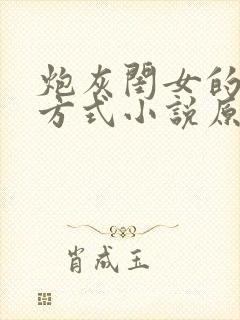 炮灰閨女的
方式小說原
肖成玉